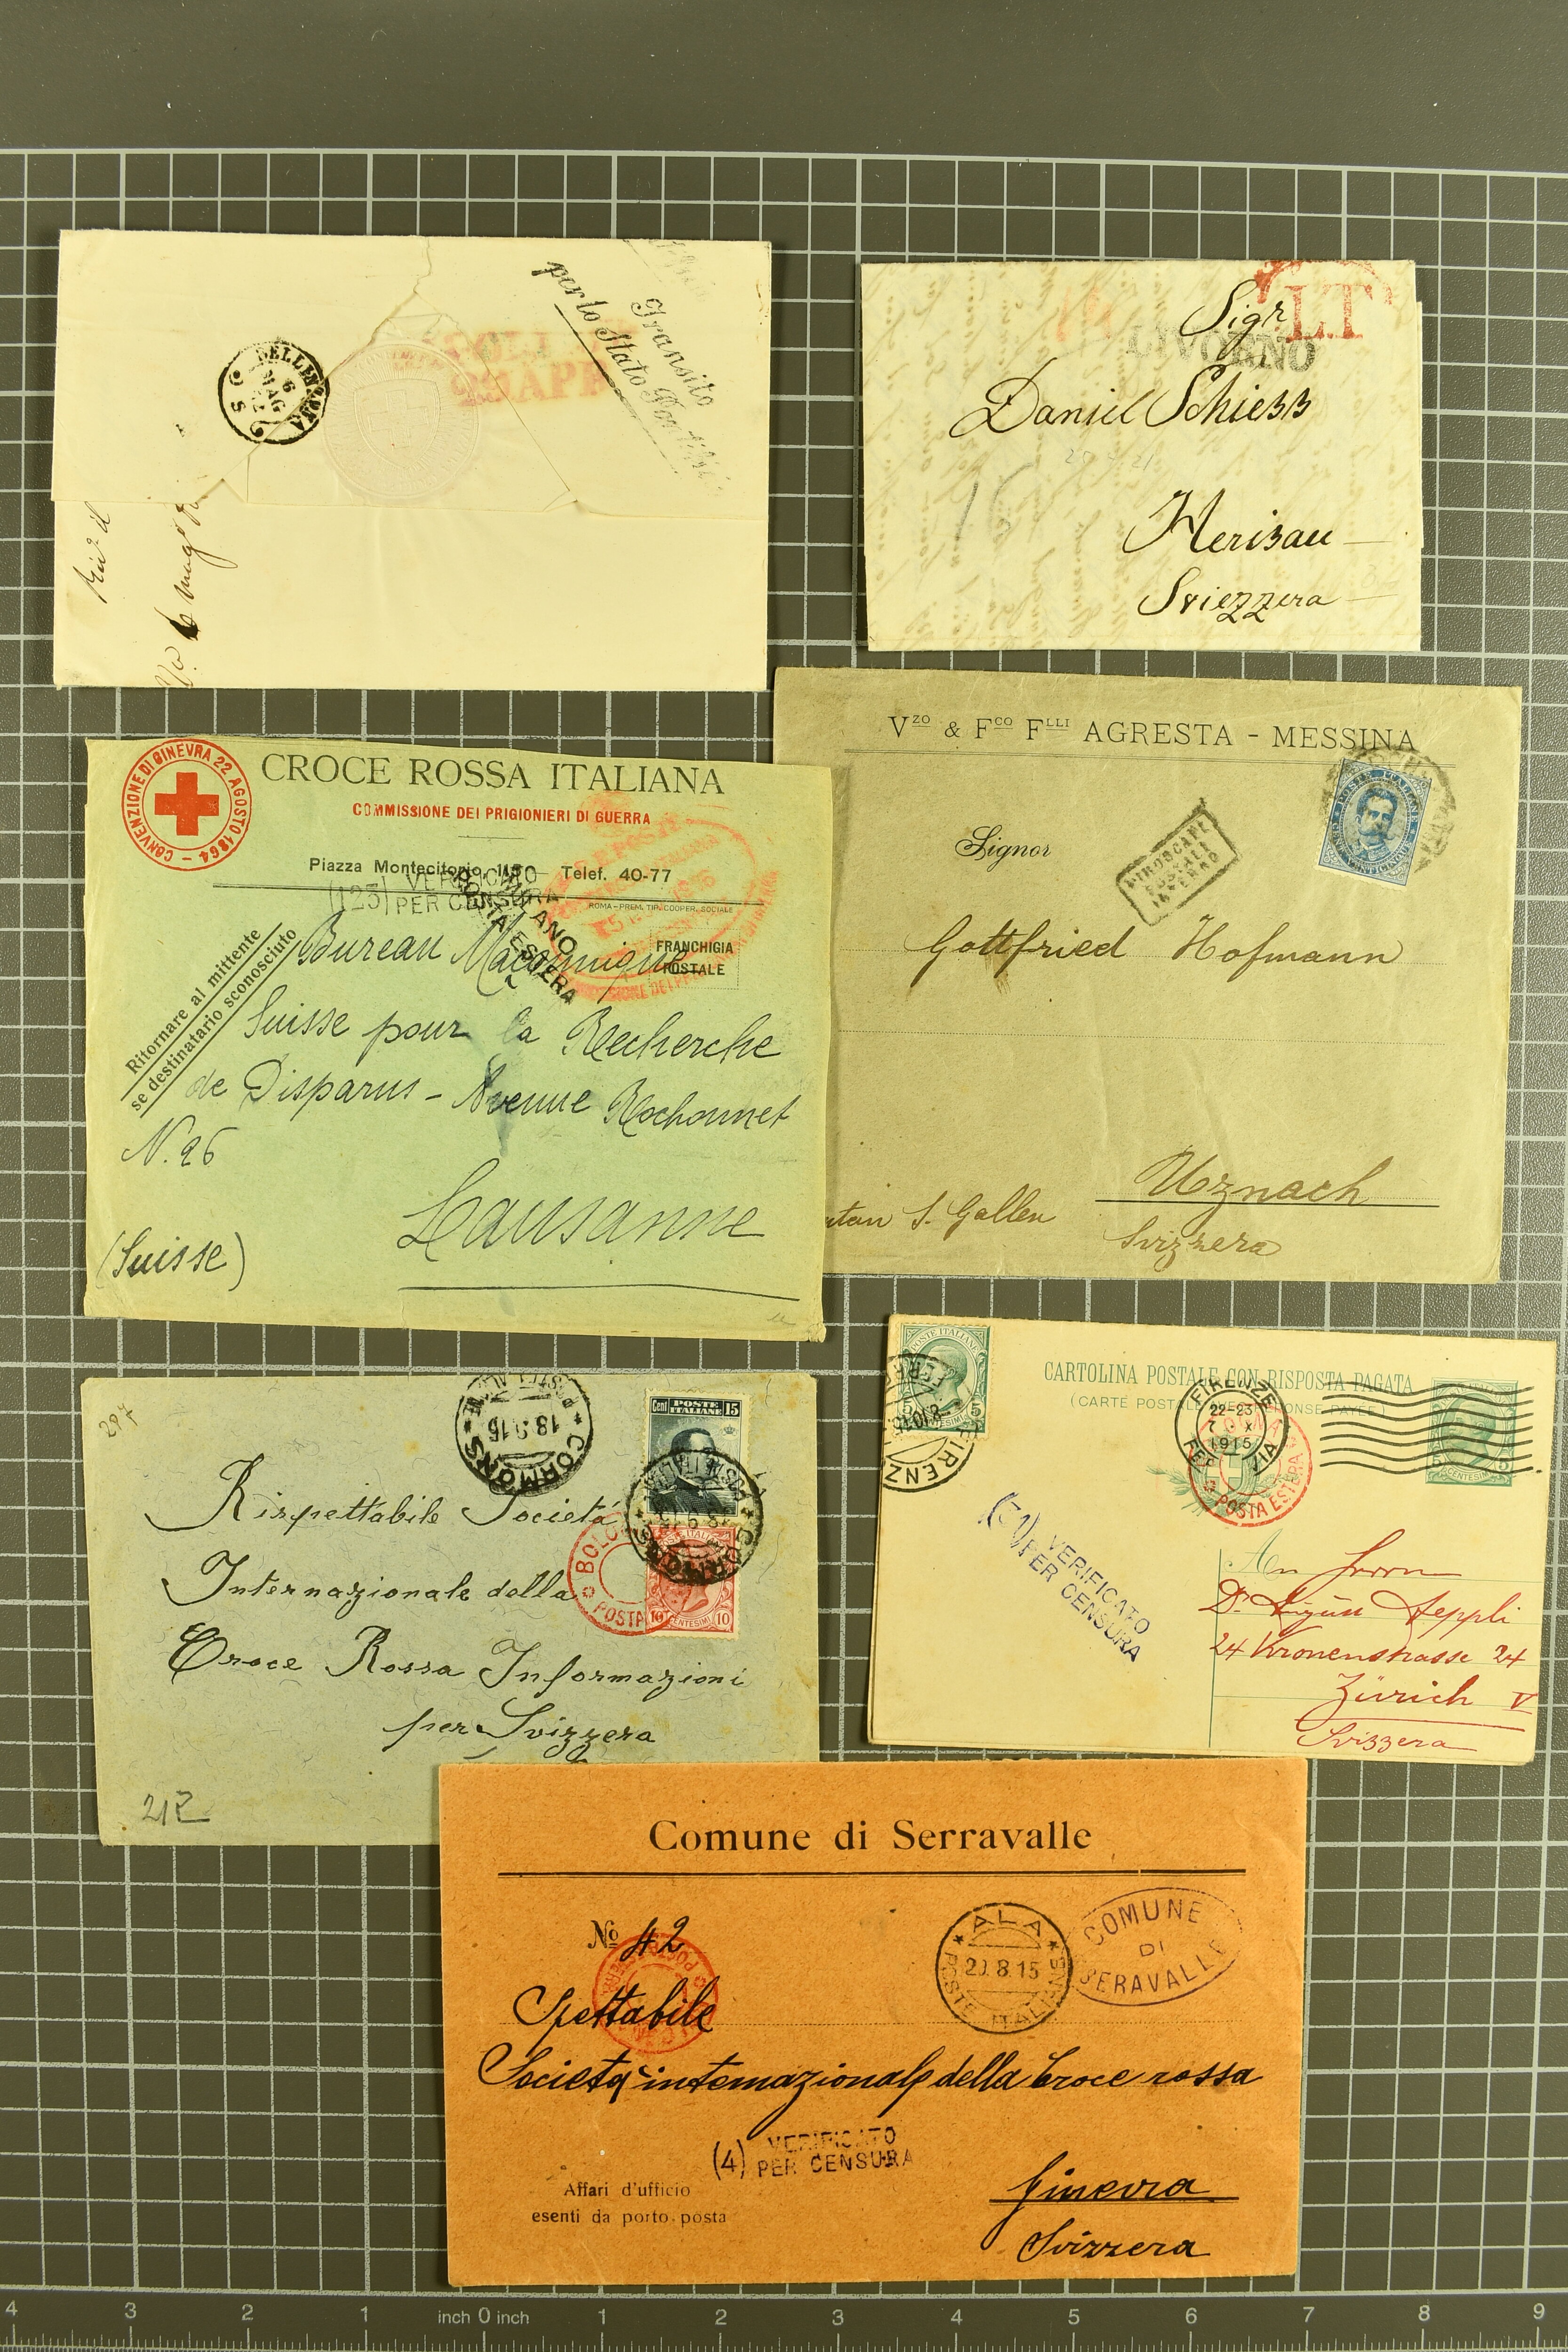 Transito
per lo Stato
BELLINZONA
6
MAG
25 APR
Sigr
L.T
LIVORNO
Daniel Schiess
16
Herisau
Sviezzera
Vzo & Fco Flli AGRESTA - MESSINA
PIROSCAFI
POSTALI
Signor
POSTE ITALIANE
Gottfried Hofmann
Uznach
S. Gallen
Svizzera
CONVENZIONE DI GINEVRA 22 AGOSTO 1864
CROCE ROSSA ITALIANA
COMMISSIONE DEI PRIGIONIERI DI GUERRA
Piazza Montecitorio, 115 — Telef. 40-77
(123) VERIFICATO
PER CENSURA
ROMA-PREM. TIP. COOPER. SOCIALE
MILANO
POSTA ESTERA
FRANCHIGIA
POSTALE
Ritornare al mittente
se destinatario sconosciuto
Bureau Maçonnique
Suisse pour la Recherche
de Disparus - Avenue Rochonnet
N. 26
Lausanne
(Suisse)
POSTE ITALIANE
5 CENTESIMI 5
FIRENZE
CARTOLINA POSTALE CON RISPOSTA PAGATA
(CARTE POSTALE AVEC RÉPONSE PAYÉE)
FIRENZE
22-23
7 X
1915
FERROVIA
POSTA ESTERA
(51) VERIFICATO
PER CENSURA
An Herrn
Dr. Aeppli
24 Kronenstrasse 24
Zürich V
Svizzera
297
CORMONS
18.9.15
Cent POSTE ITALIANE 15
CORMONS
18.9.15
10 CENTESIMI 10
BOLO
POSTA
Rispettabile Società
Internazionale della
Croce Rossa Informazioni
per Svizzera
212
Comune di Serravalle
No 42
ALA
20.8.15
POSTE ITALIANE
COMUNE
DI
SERAVALLE
Spettabile
Società internazionale della Croce rossa
(4) VERIFICATO
PER CENSURA
Affari d'ufficio
esenti da porto posta
Ginevra
Svizzera
4 3 2 1 inch 0 inch 1 2 3 4 5 6 7 8 9